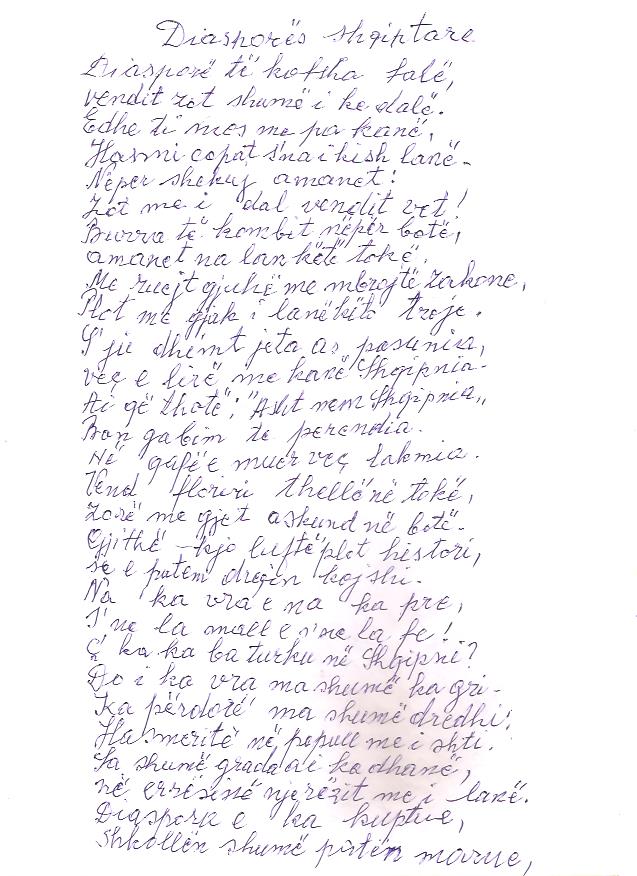 Diasporës shqiptare
Diasporë të kofsha falë,
vendit zot shumë i ke dalë.
Edhe ti mos me pa kanë,
Hasmi copat s'na i kish lanë.
Nëper shekuj amanet!
Zot me i dal vendit vet!
Burra të kombit nëpër botë,
amanet na lan këtë tokë.
Me ruejt gjuhë me mbrojtë zakone,
Plot me gjak i lanë këto troje.
S'ju dhimt jeta as pasunia,
veç e lirë me kanë Shqipnia.
Ai që thotë; "Asht nem Shqipnia„
Ban gabim te perendia.
Në qafë e muer veç lakmia.
Vend floriri thellë në tokë,
Zorë me gjet askund në botë.
Gjithë kjo luftë plot histori,
se e patëm dreqin kojshi.
Na ka vra e na ka pre,
S'ne la mall e s'ne la fe!
Ç' ka ka ba turku në Shqipni?
Do i ka vra ma shumë ka gri.
Ka përdorë ma shumë dredhi.
Hasmeritë në popull me i shti.
Sa shumë grada ai ka dhanë,
në errësinë njerëzit me i lanë.
Diaspora e ka kuptue,
Shkollën shumë patën marrue,